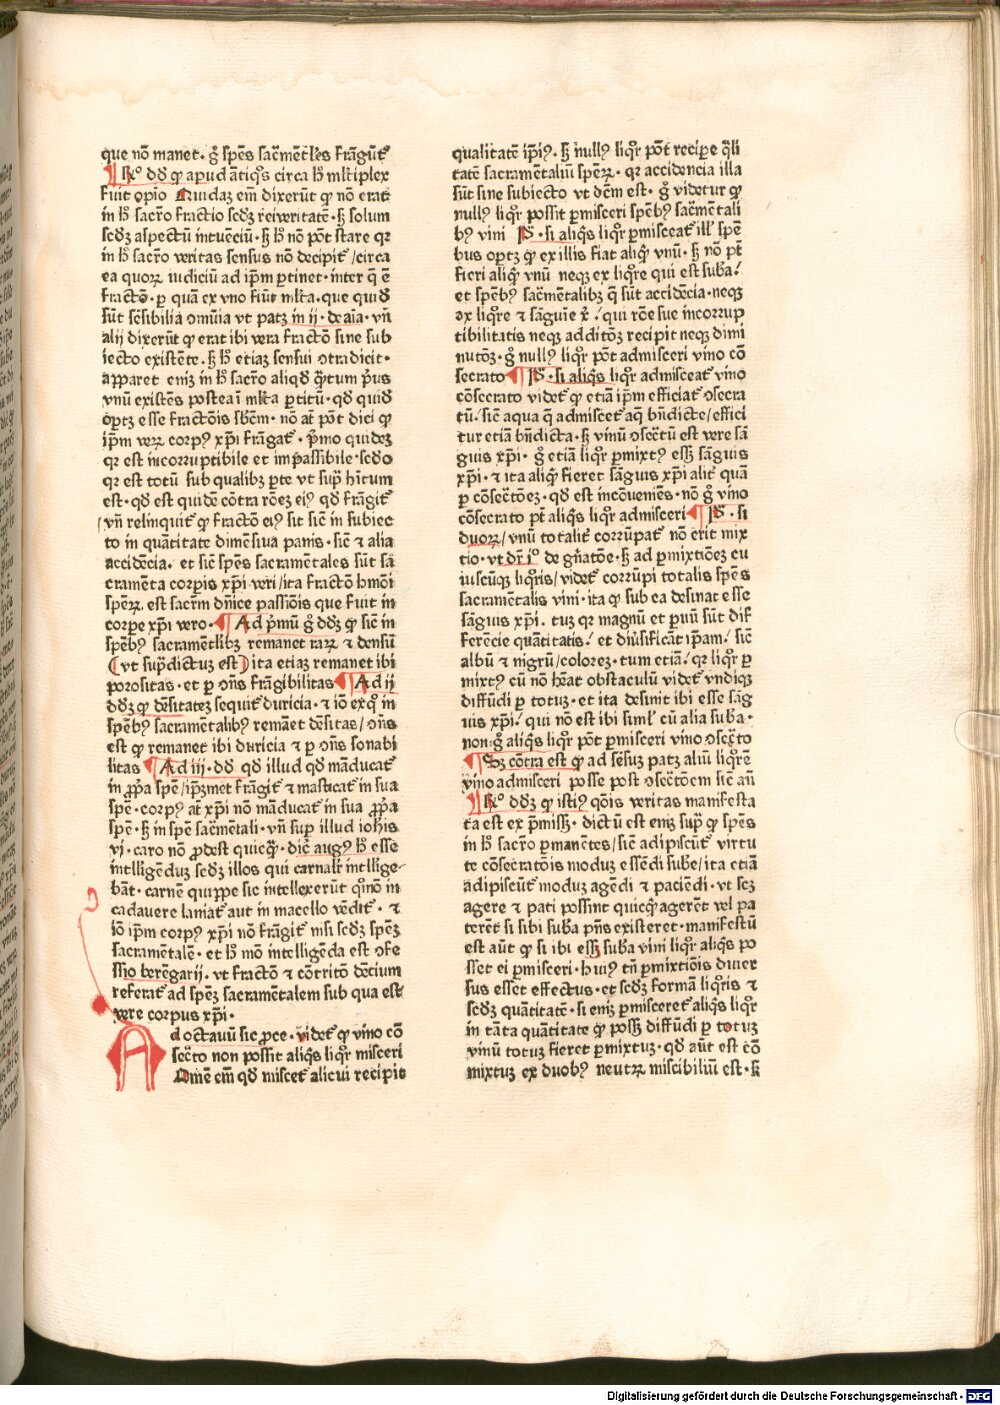 que nō manet· g̊ sp̄es sac̄mētl̄es frāgūt᷒
¶ R̄o dō ꝙ apud ātiq̄s circa h̄ ml̄tiplex
fuit opīo Quidaꝫ em̄ dixerūt ꝙ nō erat
in h̄ sacr̄o fractio scd̄ꝫ rei veritatē· ſꝫ solum
scd̄ꝫ aspectū intuēciū· ſꝫ h̄ nō pōt stare qꝛ
in h̄ sacr̄o veritas sensus nō decipit᷒ / circa
ea quoꝝ iudiciū ad ip̄m ꝑtinet· inter q̄ ē
fractō· ꝑ quā ex vno fiūt ml̄ta· que quid᷒
sūt sēsibilia om̄ia vt patꝫ in ij· de aīa· vn̄
alij dixerūt ꝙ erat ibi vera fractō sine sub
iecto existēte· ſꝫ h̄ etiaꝫ sensui ꝯtradicit·
apparet eniꝫ in h̄ sacr̄o aliqd̄ q̄tum p̄us
vnū existēs postea ī ml̄ta ꝑtitū· qd̄ quid᷒
oꝑtꝫ esse fractōis sb̄m· nō at̄ pōt dici ꝙ
ip̄m veꝝ corpꝰ xp̄i frāgat᷒· p̄mo quideꝫ
qꝛ est incorruptibile et impassibile· scd̄o
qꝛ est totū sub qualibꝫ ꝑte vt supͣ h̄itum
est· qd̄ est quidē cōtra rōeꝫ eiꝰ qd̄ frāgit᷒
/ vn̄ relinquit᷒ ꝙ fractō eiꝰ sit sic̄ in subiec
to in quātitate dimēsiua panis· sic̄ ⁊ alia
accidēcia· et sic̄ sp̄es sacramētales sūt sa
cramēta corpis xp̄i veri / ita fractō hmōi
sp̄eꝝ est sacrm̄ dn̄ice passiōis que fuit in
corpe xp̄i vero· ¶ Ad p̄mū g̊ dd̄ꝫ ꝙ sic̄ in
sp̄ebꝰ sacramētl̄ibꝫ remanet raꝝ ⁊ densū
(vt supͣdictuꝫ est) ita etiaꝫ remanet ibi
porositas· et ꝑ ꝯn̄s frāgibilitas ¶ Ad ij
dd̄ꝫ ꝙ dēsitateꝫ sequit᷒ duricia· ⁊ iō ex q̊ in
sp̄ebꝰ sacramētalibꝰ remāet dēsitas / ꝯn̄s
est ꝙ remanet ibi duricia ⁊ ꝑ ꝯn̄s sonabi
litas ¶ Ad iij· dd̄ qd̄ illud qd̄ māducat᷒
in ꝓp̄a sp̄e / ip̄mꝫ met frāgit᷒ ⁊ masticat᷒ in sua
sp̄e· corpꝰ at̄ xp̄i nō māducat᷒ in sua ꝓp̄a
sp̄e· ſꝫ in sp̄e sac̄mētali· vn̄ sup illud ioh̄is
vj· caro nō ꝓdest quicq̄· dic̄ augꝰ h̄ esse
intelligēduꝫ scd̄ꝫ illos qui carnalr̄ intellige-
bāt· carnē quippe sic intellexerūt q̊mō in
cadauere laniat᷒ aut in macello vēdit᷒· ⁊
iō ip̄m corpꝰ xp̄i nō frāgit᷒ nisi scd̄ꝫ sp̄eꝫ
sacramētalē· et h̄ mō intelligēda est ꝯfe
ssio berēgarij· vt fractō ⁊ cōtritō dētium
referat᷒ ad sp̄eꝫ sacramētalem sub qua est
vere corpus xp̄i·
Ad octauū sic ꝓce· videt᷒ ꝙ vino cō
secr̄to non possit aliq̄s liq̊r misceri
Omē em̄ qd̄ miscet᷒ alicui recipit
qualitatē ip̄iꝰ· ſꝫ nullꝰ liq̊r pōt recipe q̄li
tatē sacramētaliū sp̄eꝝ· qꝛ accidencia illa
sūt sine subiecto vt dc̄m est· g̊ videtur ꝙ
nullꝰ liq̊r possit ꝑmisceri sp̄ebꝰ sac̄mētali
bꝰ vini ¶ P̄· si aliq̄s liq̊r ꝑmisceat᷒ ill᷒ spē
bus oꝑtꝫ ꝙ ex illis fiat aliq̄ vnū· ſꝫ nō pt̄
fieri aliq̄ vnū neqꝫ ex liq̊re qui est suba·
et sp̄ebꝰ sac̄mētalibꝫ q̄ sūt accidēcia· neqꝫ
ex liq̊re ⁊ sāguie xͥ· qui rōe sue incorrup
tibilitatis neqꝫ additōꝫ recipit neqꝫ dimi
nutōꝫ· g̊ nullꝰ liq̊r pōt admisceri vino cō
secrato ¶ P̄· si aliq̄s liq̊r admisceat᷒ vino
cōsecrato videt᷒ ꝙ etiā ip̄m efficiat᷒ ꝯsecra
tū· sic̄ aqua q̄ admiscet᷒ aq̄ bn̄dicte / effici
tur etiā bn̄dicta· ſꝫ vinū ꝯsecr̄tū est vere sā
guis xp̄i· g̊ etiā liq̊r ꝑmixtꝰ essꝫ sāguis
xp̄i· ⁊ ita aliq̄ fieret sāguis xp̄i alit᷒ quā
ꝑ cōsecr̄tōeꝫ· qd̄ est incōueniēs· nō g̊ vino
cōsecrato pt̄ aliq̄s liq̊r admisceri ¶ P̄· si
duoꝝ / vnū totalit᷒ corrūpat᷒ nō erit mix
tio· vt dr̄ iº de gn̄atōe· ſꝫ ad ꝑmixtiōeꝫ cu
iuscūqꝫ liq̊ris / videt᷒ corrūpi totalis sp̄es
sacramētalis vini· ita ꝙ sub ea desinat esse
sāguis xp̄i· tuꝫ qꝛ magnū et ꝑuū sūt dif
ferēcie quātitatis· et diūsificāt ip̄am· sic̄
albū ⁊ nigrū / coloreꝫ· tum etiā· qꝛ liq̊r ꝑ
mixtꝰ cū nō h̄eat obstaculū videt᷒ vndiqꝫ
diffūdi ꝑ totuꝫ· et ita desinit ibi esse sāg
uis xp̄i· qui nō est ibi siml᷒ cū alia suba·
non g̊ aliq̄s liq̊r pōt ꝑmisceri vino ꝯsecr̄to
¶ Sꝫ cōtra est ꝙ ad sēsuꝫ patꝫ aliū liq̊rē
vino admisceri posse post ꝯsecr̄tōem sic̄ an̄
¶ R̄o dd̄ꝫ ꝙ istiꝰ q̄ōis veritas manifesta
ta est ex p̄missꝫ· dictū est eniꝫ supͣ ꝙ sp̄es
in h̄ sacr̄o ꝑmanētes / sic̄ adipiscūt᷒ virtu
te cōsecratōis moduꝫ essēdi sube / ita etiā
adipiscūt᷒ moduꝫ agēdi ⁊ paciēdi· vt scꝫ
agere ⁊ pati possint quicq̄ agerēt vel pa
terēt᷒ si ibi suba p̄ns existeret· manifestū
est aūt ꝙ si ibi essꝫ suba vini liq̊r aliq̄s po
sset ei ꝑmisceri· huiꝰ tn̄ ꝑmixtiōis diuer
sus esset effectus· et scd̄ꝫ formā liq̊ris ⁊
scd̄ꝫ quātitatē· si eniꝫ ꝑmisceret᷒ aliq̄s liq̊r
in tāta quātitate ꝙ possꝫ diffūdi ꝑ totuꝫ
vinū totuꝫ fieret ꝑmixtuꝫ· qd̄ aūt est cō
mixtuꝫ ex duobꝰ neutꝝ miscibiliū est· ſꝫ
Digitalisierung gefördert durch die Deutsche Forschungsgemeinschaft · DFG